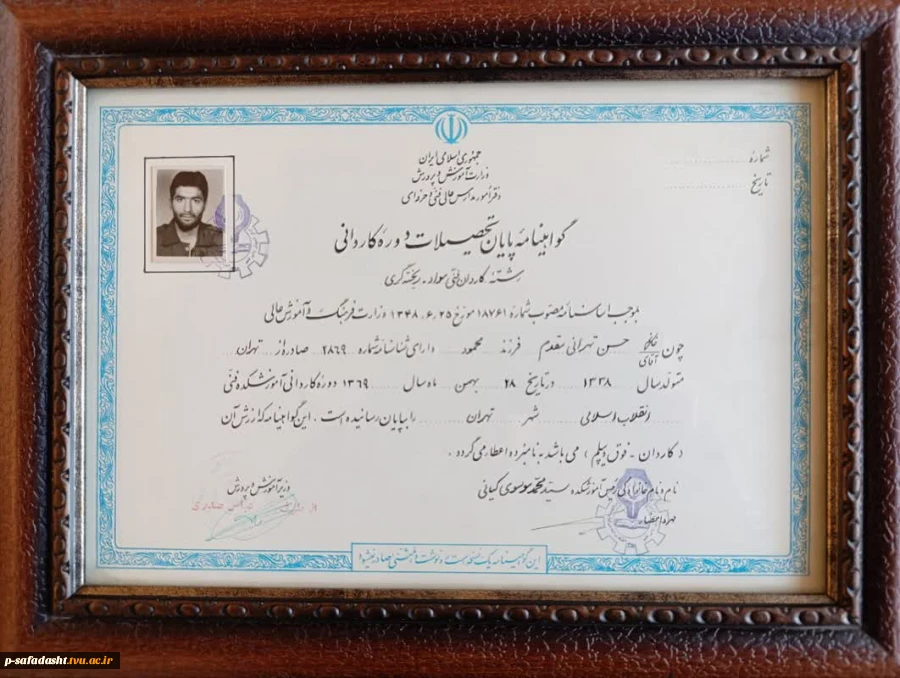 شماره
تاریخ
جمهوری اسلامی ایران
وزارت آموزش و پرورش
دفتر امور مدارس عالی فنی و حرفه‌ای
گواهینامه پایان تحصیلات دوره کاردانی
رشته: کاردان فنی مواد - ریخته گری
بموجب اساسنامه مصوب شماره ۱۸۷۶۱ مورخ ۱۳۴۸,۶,۲۵ وزارت فرهنگ و آموزش عالی
چون خانم آقای حسن تهرانی مقدم فرزند محمود دارای شناسنامه شماره ۲۸۶۹ صادره از تهران
متولد سال ۱۳۳۸ در تاریخ ۲۸ بهمن ماه سال ۱۳۶۹ دوره کاردانی آموزشکده فنی
انقلاب اسلامی شهر تهران را بپایان رسانیده است . این گواهینامه که ارزش آن
( کاردان - فوق دیپلم ) می باشد به نامبرده اعطا می گردد .
نام و نام خانوادگی رئیس آموزشکده سید محمد موسوی کیانی
مهر و امضاء
وزیر آموزش و پرورش
از طرف صدری
این گواهینامه یک نسخه است و رونوشت المثنی صادر نمیشود
p-safadasht.tvu.ac.ir